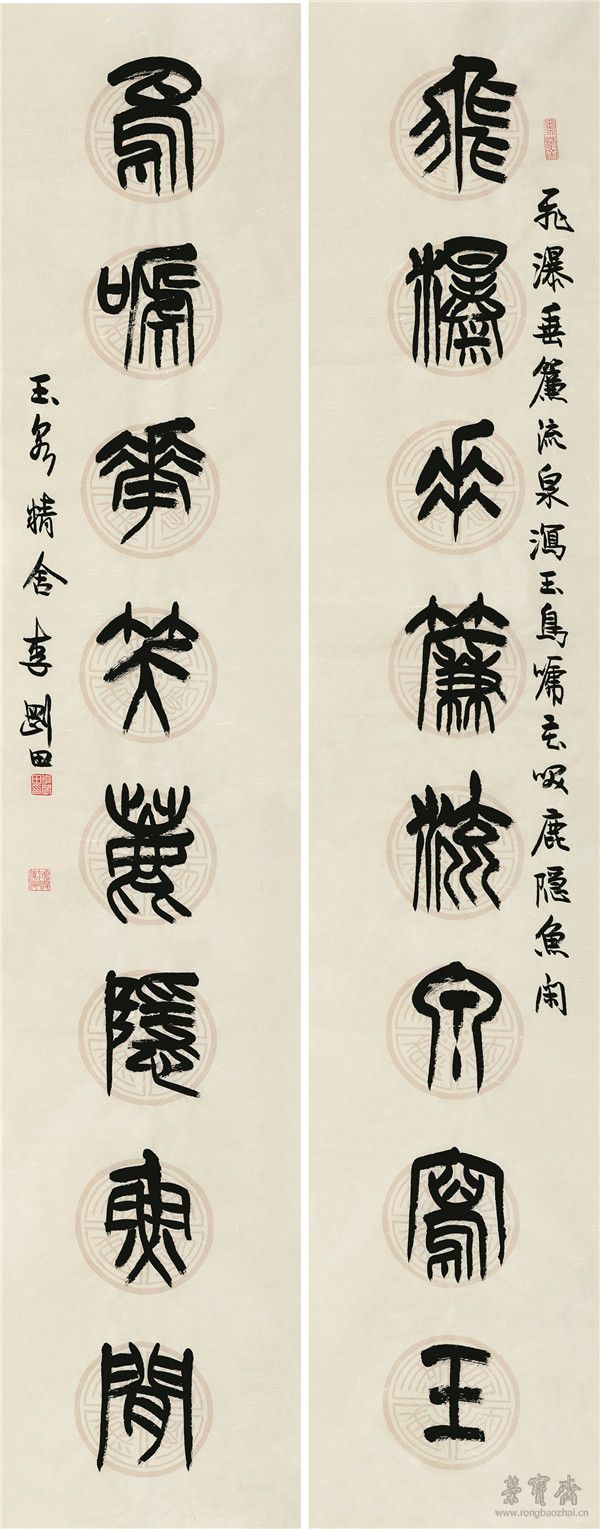 飛瀑垂簾流泉瀉玉鳥嘑花咲鹿隐魚閑
飛瀑垂簾流泉寫玉
鳥嘑華笑麃隱魚閒
玉精舍李剛田
榮寶齋
www.rongbaozhai.cn